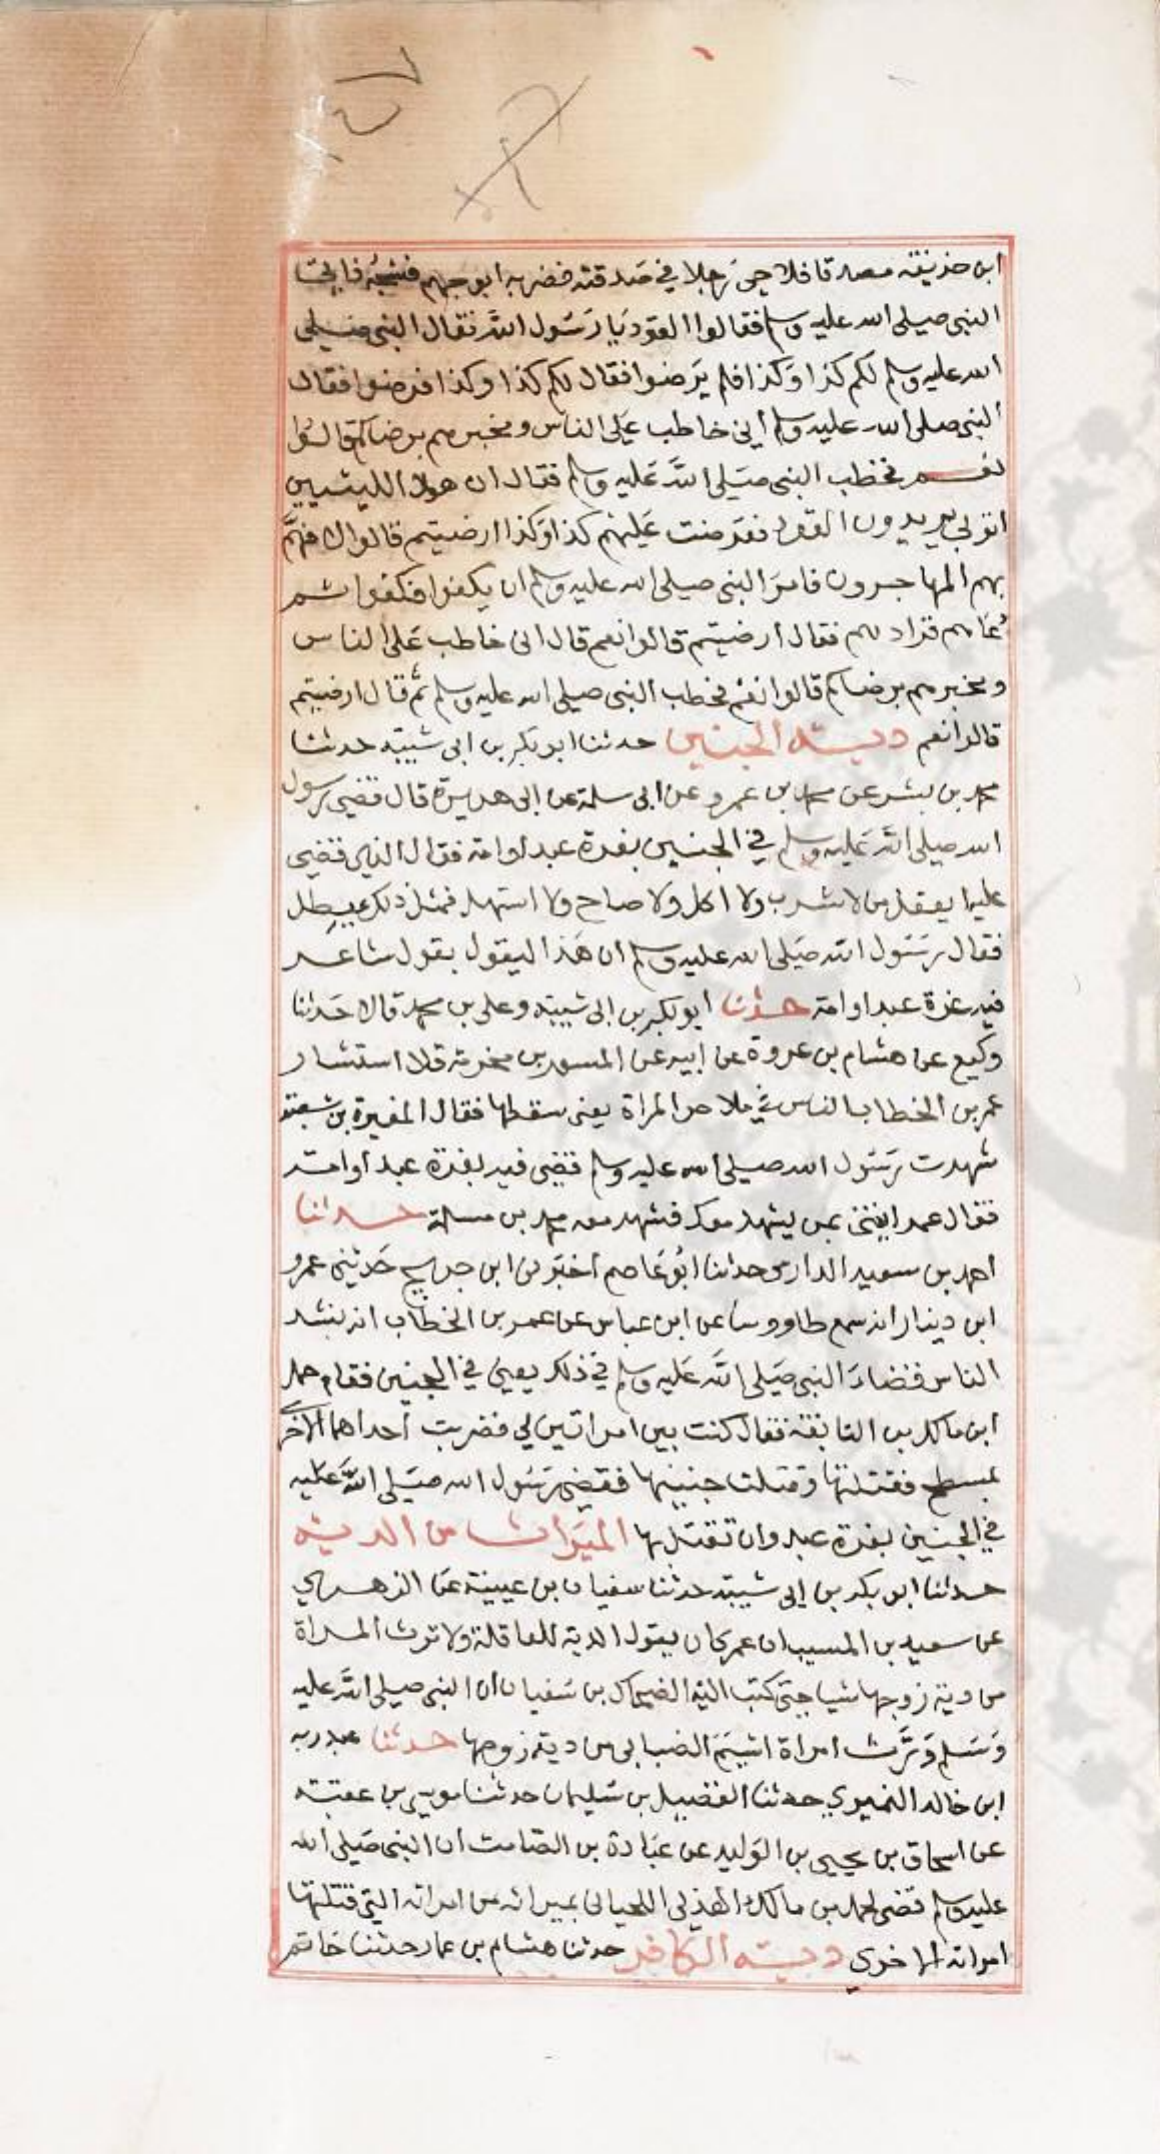 ابن حذيفة مصدقا فلاجى رجلا في صدقته فضربه ابو جهم فشجه فاتوا
النبى صلى الله عليه وسلم فقالوا القود يا رسول الله فقال النبى صلى
الله عليه وسلم لكم كذا وكذا فلم يرضوا فقال لكم كذا وكذا فرضوا فقال
النبى صلى الله عليه وسلم أنى خاطب على الناس ومخبرهم برضاكم قالوا
نعم فخطب النبى صلى الله عليه وسلم فقال ان هولا الليثيين
اتونى يريدون القود فعرضت عليهم كذا وكذا ارضيتم قالوا لا فهمّ
بهم المهاجرون فامر النبى صلى الله عليه وسلم ان يكفوا فكفوا ثم
دعاهم فزادهم فقال أرضيتم قالوا نعم قال انى خاطب على الناس
ومخبرهم برضاكم قالوا نعم فخطب النبى صلى الله عليه وسلم ثم قال ارضيتم
قالوا نعم دية الجنين حدثنا ابو بكر بن ابى شيبة حدثنا
محمد بن بشر عن محمد بن عمرو عن ابى سلمة عن ابى هريرة قال قضى رسول
الله صلى الله عليه وسلم في الجنين بغرة عبد أو امة فقال الذى قضى
عليه ا يعقل من لا شرب ولا اكل ولا صاح ولا استهل فمثل ذلك يطل
فقال رسول الله صلى الله عليه وسلم ان هذا ليقول بقول شاعر
فيه غرة عبد او امة حدثنا ابو بكر بن ابى شيبة وعلى بن محمد قالا حدثنا
وكيع عن هشام بن عروة عن ابيه عن المسور بن مخرمة قلا استشار
عمر بن الخطاب الناس في ملاص المراة يعنى سقطها فقال المغيرة بن شعبة
شهدت رسول الله صلى الله عليه وسلم قضى فيه بغرة عبد أو امة
فقال عمر ايتنى بمن يشهد معك فشهد معه محمد بن مسلمة حدثنا
احمد بن سعيد الدارمى حدثنا ابو عاصم أخبرنى ابن جريج حدثنى عمرو
ابن دينار انه سمع طاووسا عن ابن عباس عن عمر بن الخطاب انه نشد
الناس قضاء النبى صلى الله عليه وسلم في ذلك يعنى في الجنين فقام حمل
ابن مالك بن النابغة فقال كنت بين امراتين لى فضربت أحداهما الاخرى
بمسطح فقتلتها وقتلت جنينها فقضى رسول الله صلى الله عليه
في الجنين بغرة عبد وان تقتل بها الميراث من الدية
حدثنا ابو بكر بن ابى شيبة حدثنا سفيان بن عيينة عن الزهري
عن سعيد بن المسيب ان عمر كان يقول الدية للعاقلة ولا ترث المراة
من دية زوجها شيا حتى كتب اليه الضحاك بن سفيان ان النبى صلى الله عليه
وسلم ورث امراة اشيم الضبابى من دية زوجها حدثنا عبد ربه
ابن خالد النميري حدثنا الفضيل بن سليمان حدثنا موسى بن عقبة
عن اسحاق بن يحيى بن الوليد عن عبادة بن الصامت ان النبى صلى الله
عليه وسلم قضى لحمل بن مالك الهذلى اللحيانى بميراثه من امراته التى قتلتها
امراته الاخرى دية الكافر حدثنا هشام بن عمار حدثنا حاتم